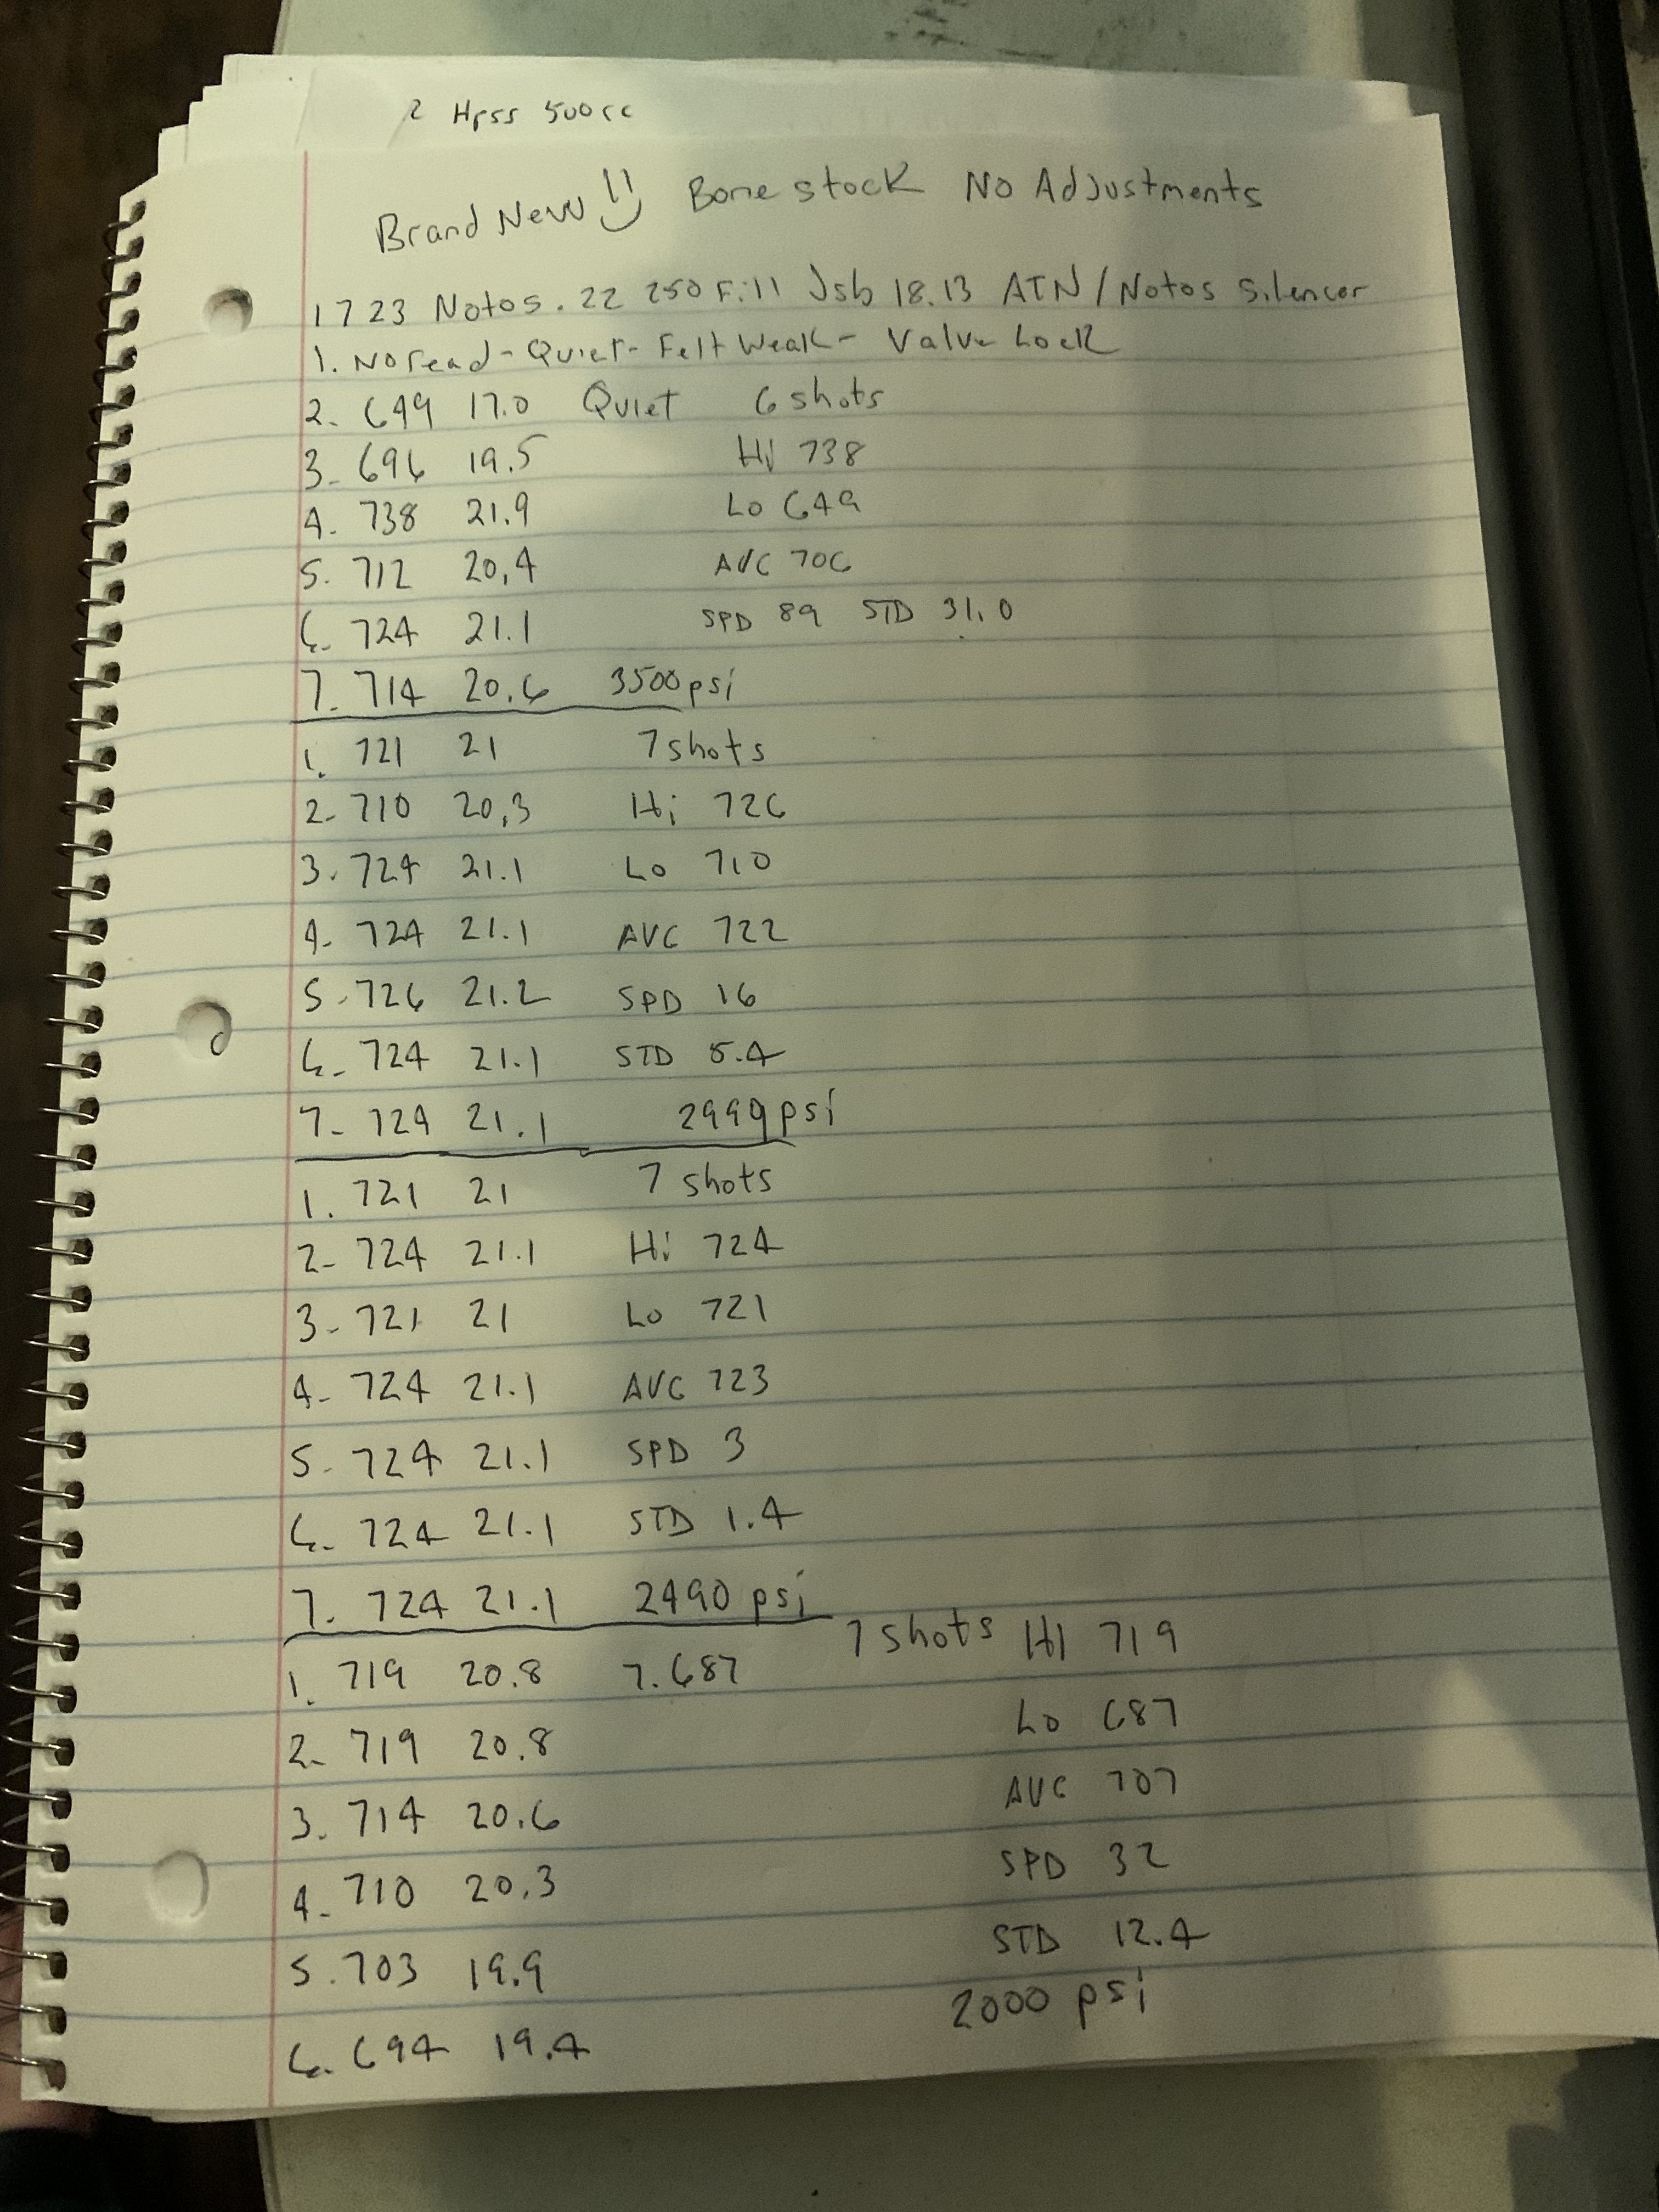 2 Hpss 500cc
Brand New!! Bone stock No Adjustments
1723 Notos .22 250 Fill Jsb 18.13 ATN/Notos Silencer
1. No read - Quiet - Felt Weak - Valve Lock
2. 649 17.0 Quiet 6 shots
3. 696 19.5 Hi 738
4. 738 21.9 Lo 649
5. 712 20.4 AVG 706
6. 724 21.1 SPD 89 STD 31.0
7. 714 20.6 3500 psi
1. 721 21 7 shots
2. 710 20.3 Hi 726
3. 724 21.1 Lo 710
4. 724 21.1 AVG 722
5. 726 21.2 SPD 16
6. 724 21.1 STD 5.4
7. 724 21.1 2990 psi
1. 721 21 7 shots
2. 724 21.1 Hi 724
3. 721 21 Lo 721
4. 724 21.1 AVG 723
5. 724 21.1 SPD 3
6. 724 21.1 STD 1.4
7. 724 21.1 2490 psi
7 shots HI 719
1. 719 20.8 7. 687
Lo 687
2. 719 20.8
AVG 707
3. 714 20.6
SPD 32
4. 710 20.3
STD 12.4
5. 703 19.9
2000 psi
6. 694 19.4